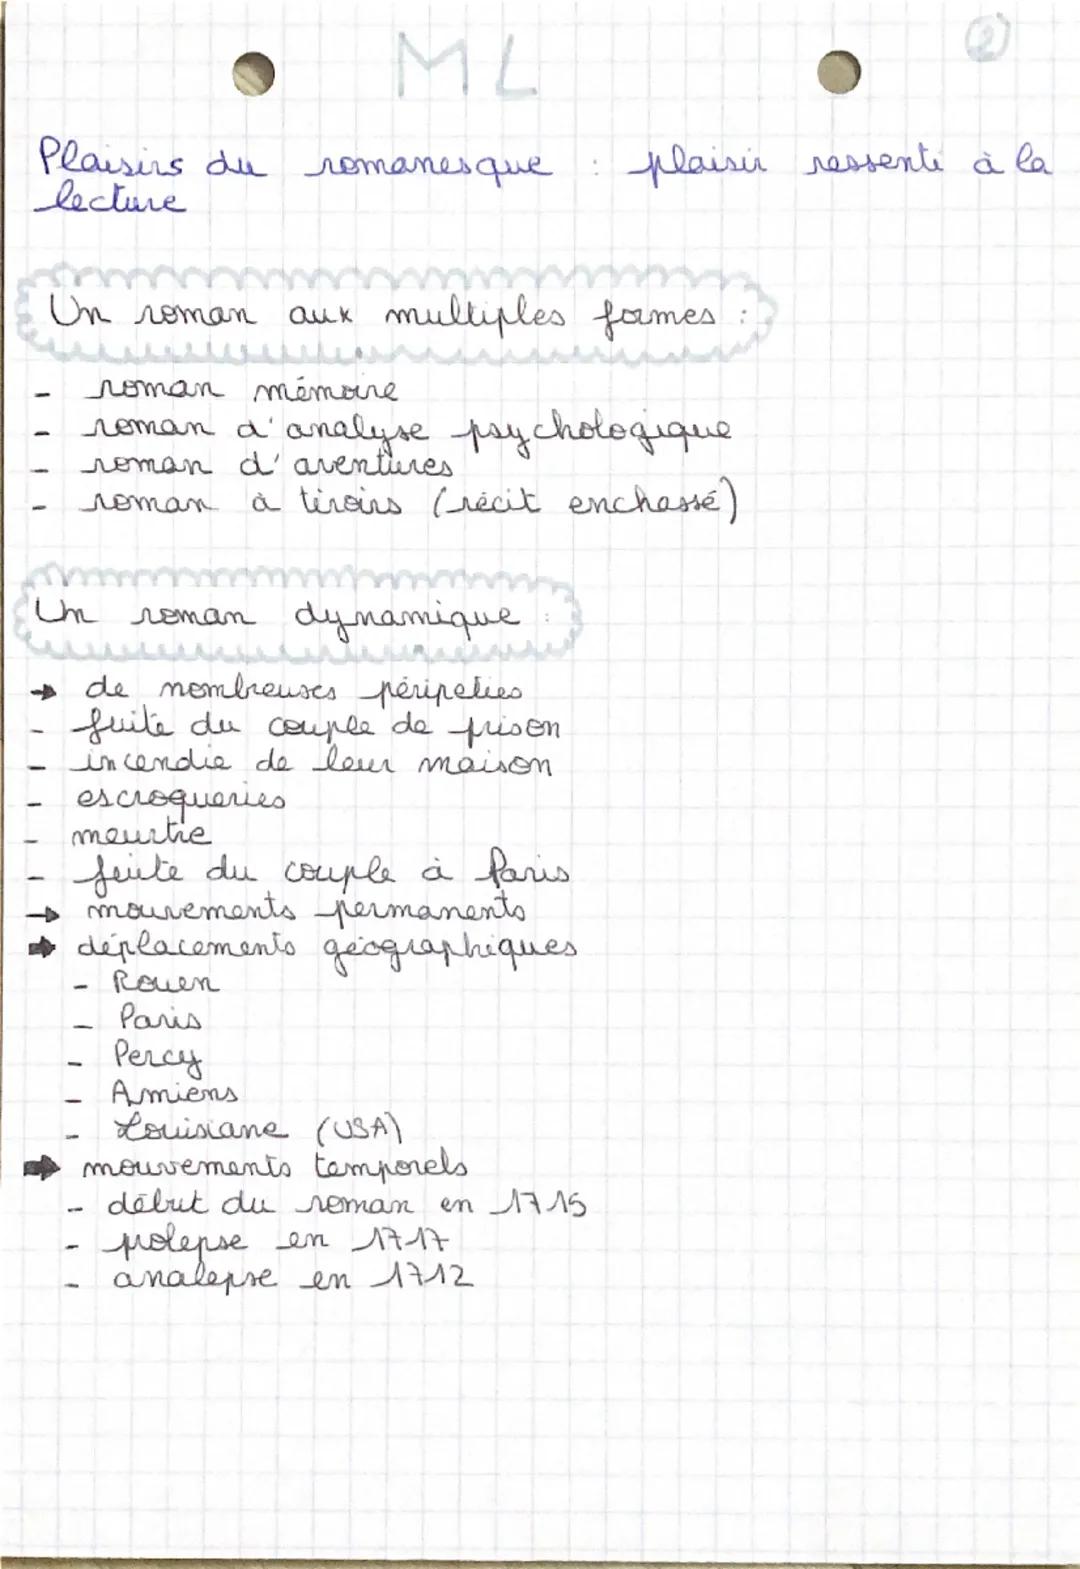 ML
②
Plaisirs du romanesque : plaisir ressenti à la
lecture
Un roman aux multiples formes :
- roman mémoire
- roman d'analyse psychologique
- roman d'aventures
- roman à tiroirs (récit enchassé)
Un roman dynamique :
→ de nombreuses péripeties
- fuite du couple de prison
- incendie de leur maison
- escroqueries
- meurtre
- fuite du couple à Paris
→ mouvements permanents
→ déplacements géographiques
- Rouen
- Paris
- Percy
- Amiens
- Louisiane (USA)
→ mouvements temporels
- début du roman en 1715
- polepse en 1717
- analepse en 1712